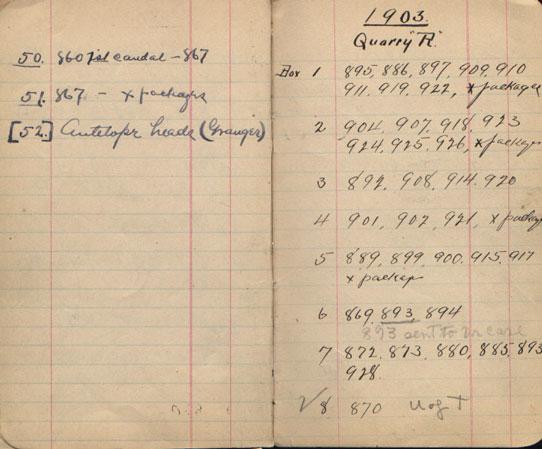 50. 860 1st caudal - 867
51. 867 - x packages
[52.] Antelope heads (Granger)
1903.
Quarry "R."
Box 1 895, 886, 897, 909, 910
911, 919, 922, x packages
2 904, 907, 918, 923
924, 925, 926, x packages
3 892, 908, 914, 920
4 901, 902, 921, x packag
5 889, 899, 900, 915, 917
x packages
6 869, 893, 894
893 sent to
7 872, 873, 880, 885, 893
928.
√ 8 870 U of T